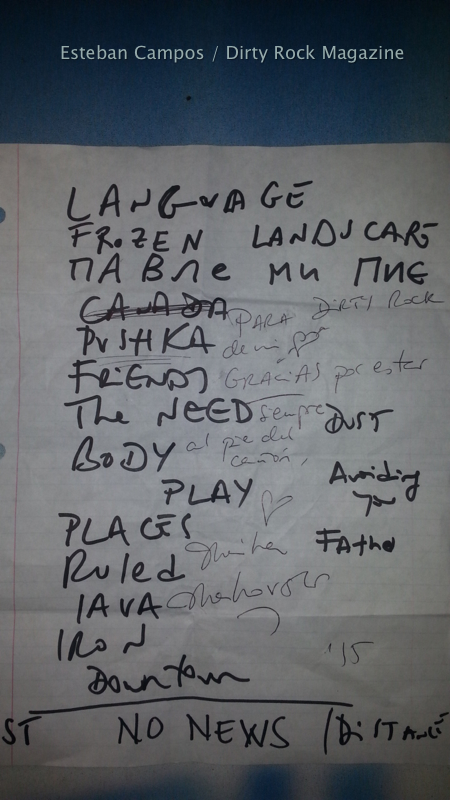 Esteban Campos / Dirty Rock Magazine
LANGUAGE
FROZEN LANDSCAPE
ПАВЛЕ МИ ПИЕ
CANADA
PARA DIRTY ROCK
PUSHKA
de mi por
FRIENDS
GRACIAS por estar
The NEED
siempre
DUST
BODY
al pie del
cañón,
PLAY
Avoiding
You
PLACES
Father
Ruled
JAVA
IRON
'15
Downtown
ST NO NEWS / DISTANCE